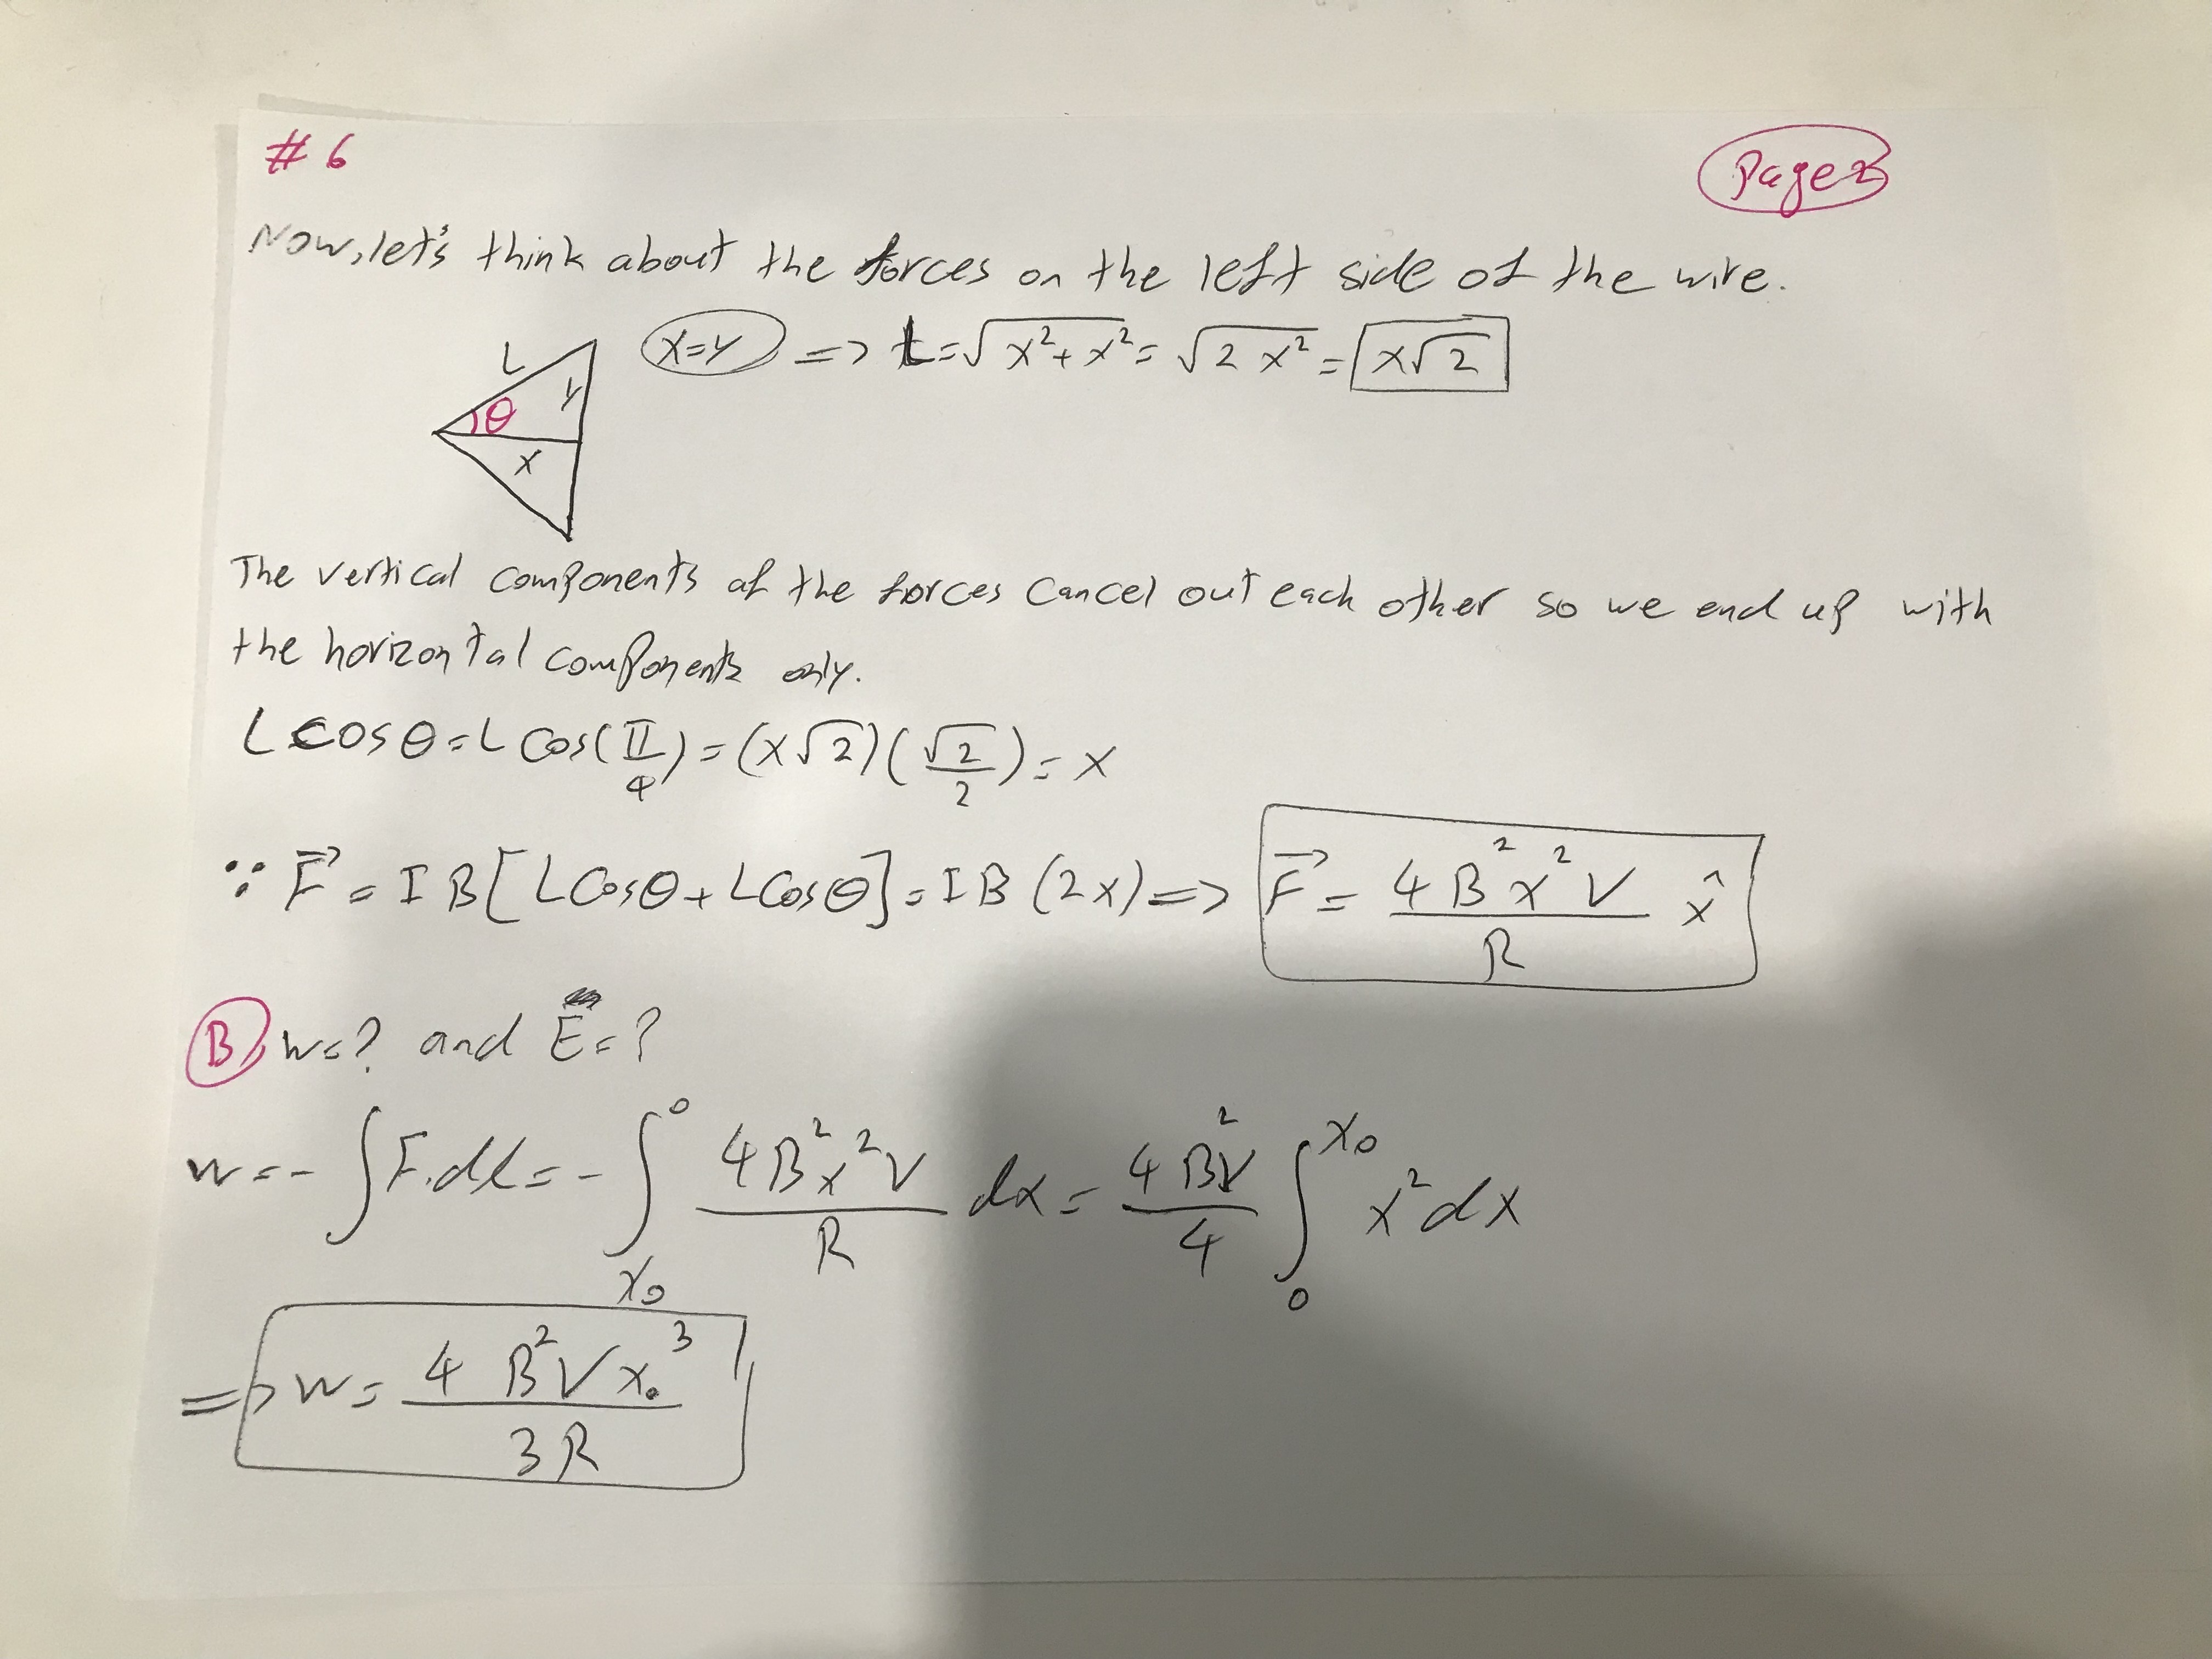 #6
Page 2
Now, let's think about the forces on the left side of the wire.
L y θ x
x=y => L=√x²+x² = √2x² = x√2
The vertical components of the forces cancel out each other so we end up with
the horizontal components only.
L cosθ = L cos(π/4) = (x√2)(√2/2) = x
∵ F⃗ = IB[Lcosθ + Lcosθ] = IB(2x) => F⃗ = 4B²x²V/R x̂
B) W=? and E=?
W = -∫F.dl = -∫_{x₀}^{0} 4B²x²V/R dx = 4B²V/4 ∫_{0}^{x₀} x²dx
=> W = 4B²Vx₀³/3R